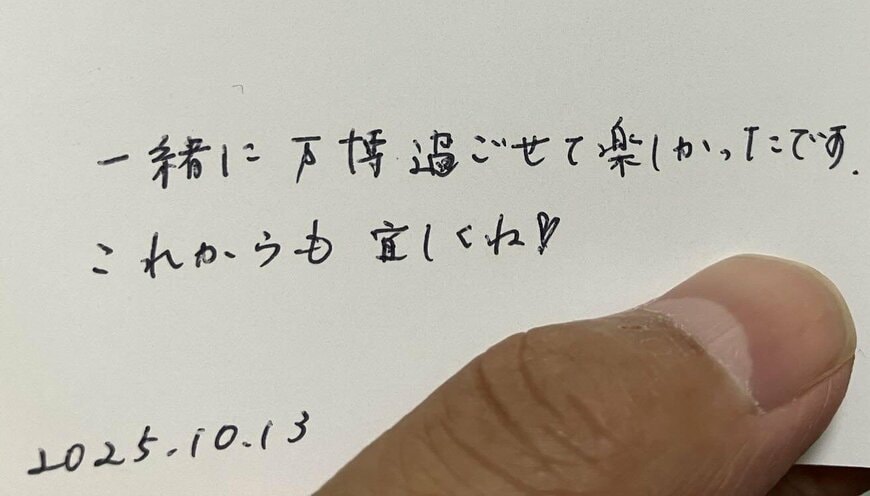 一緒に万博過ごせて楽しかったです.
これからも宜しくね♡
2025.10.13